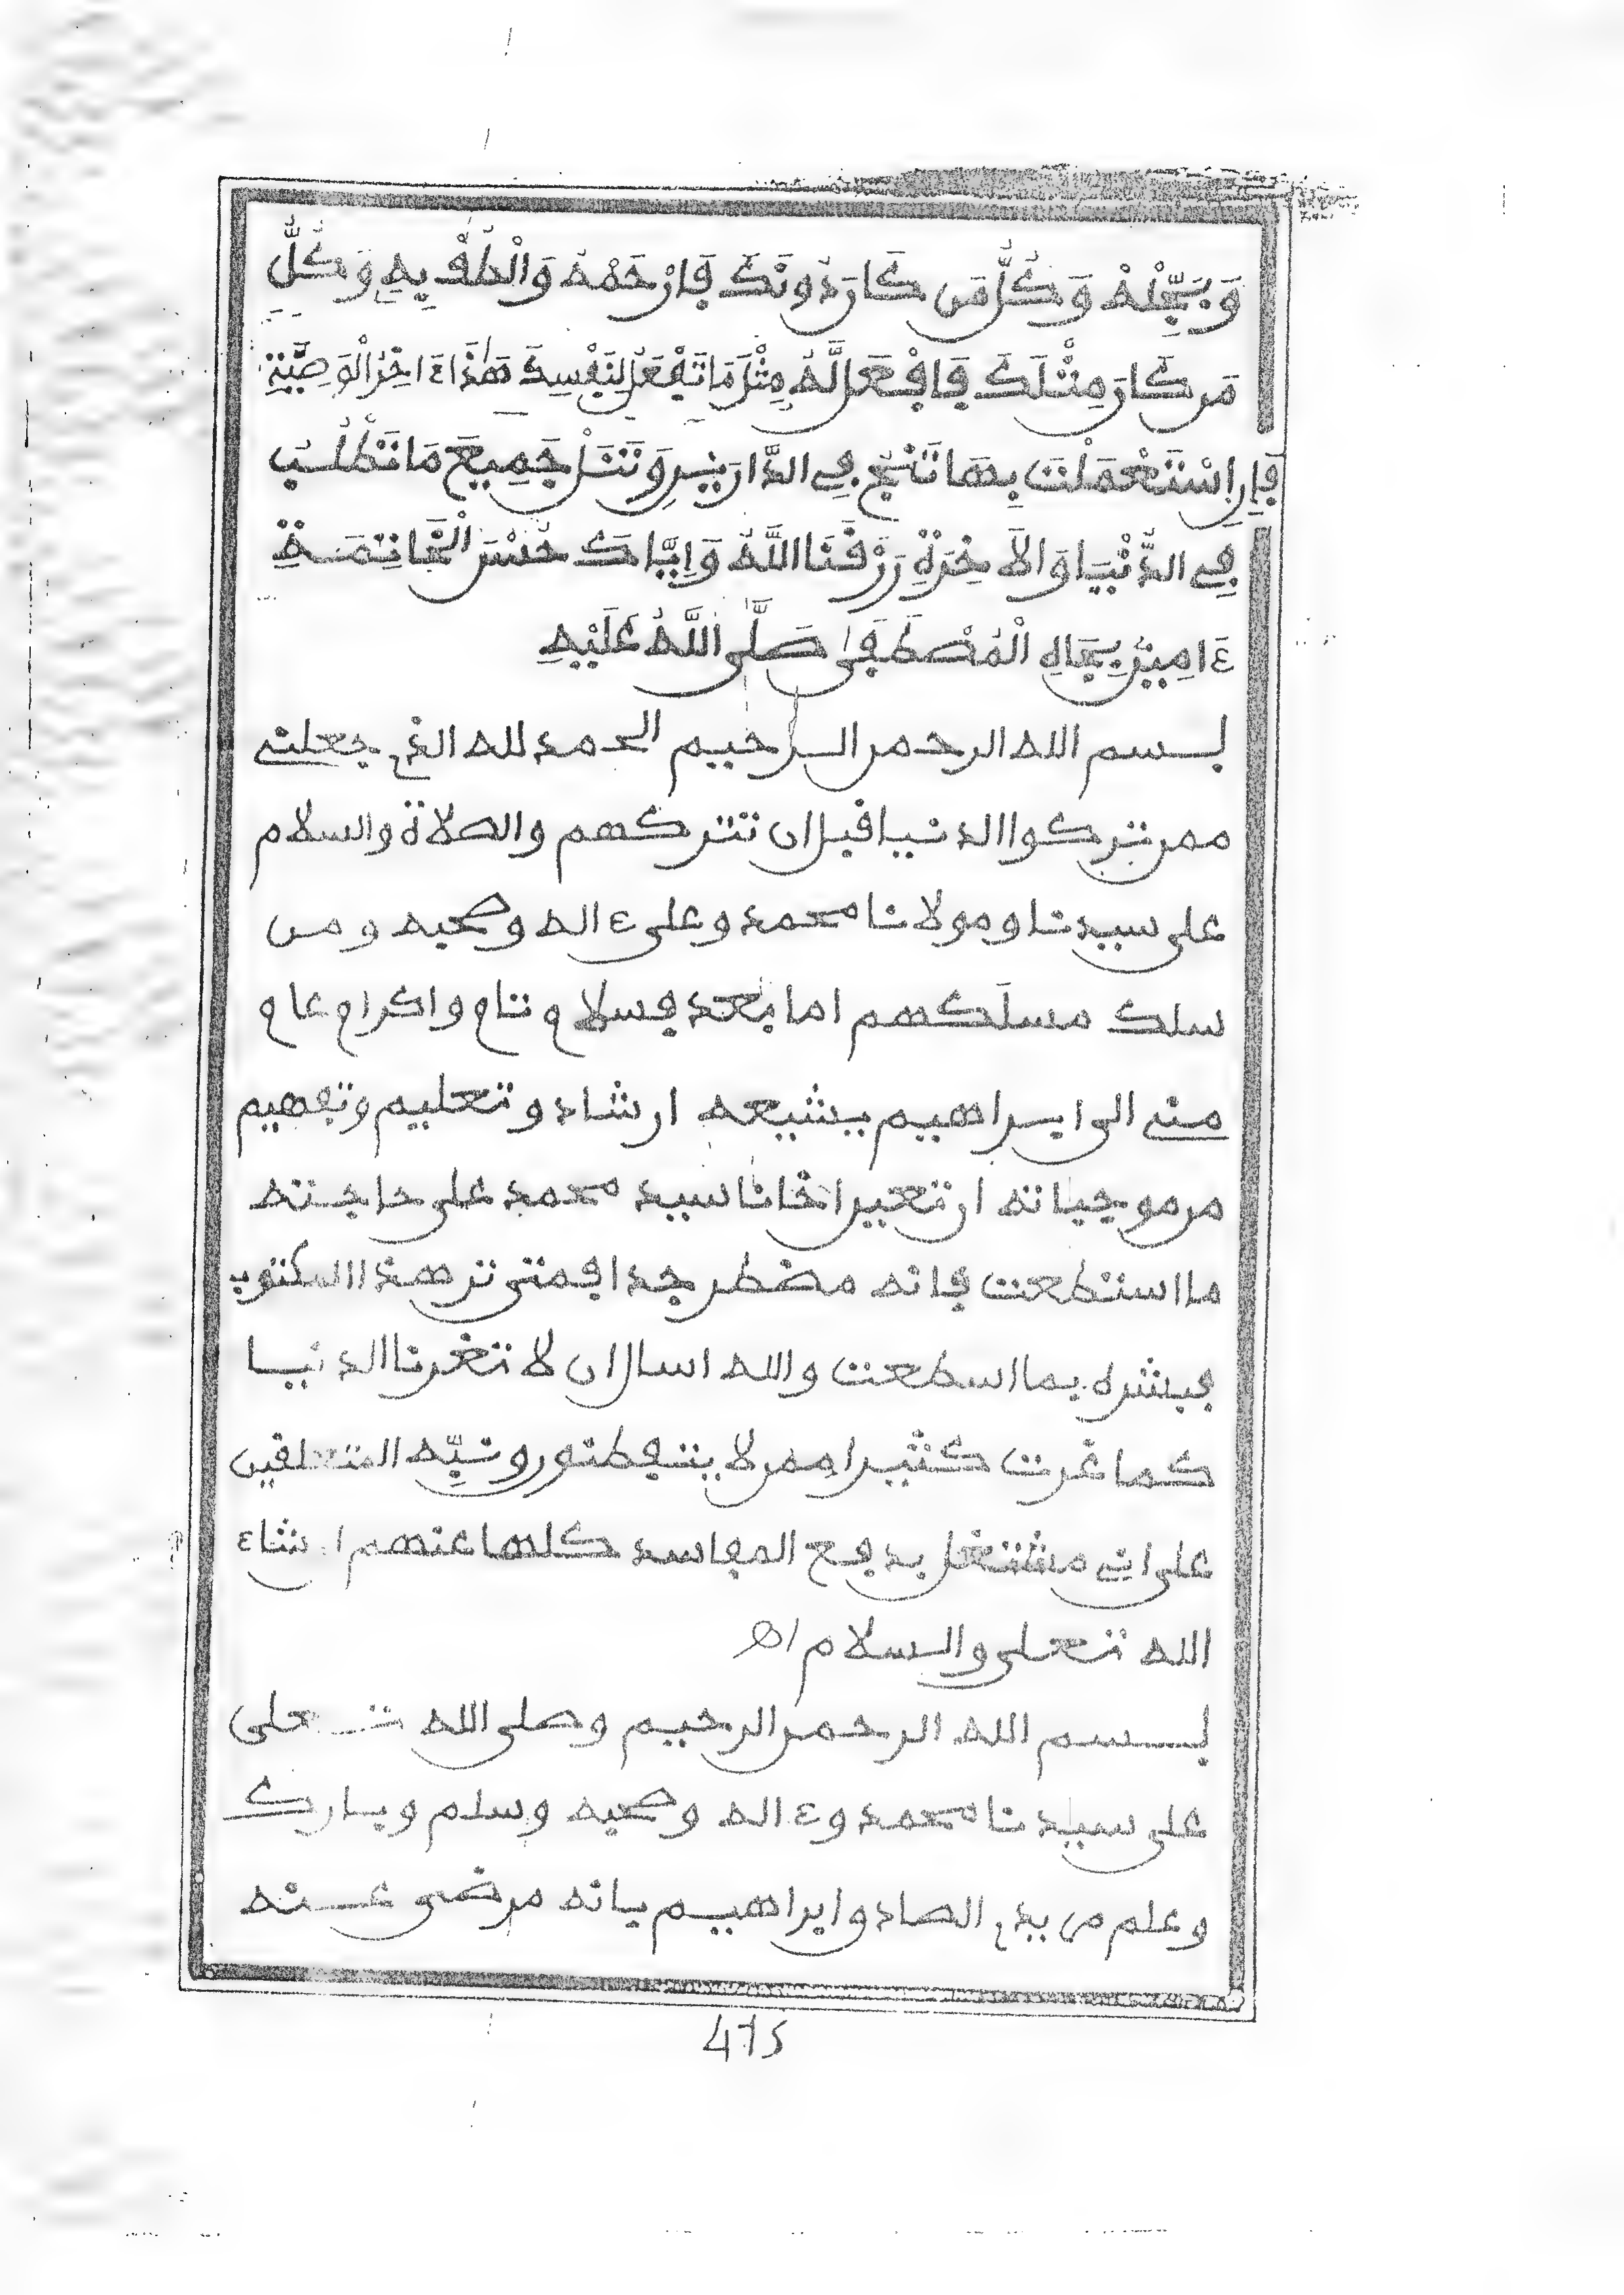 وَبَجِّلْهُ وَكُلُّ مَن كَانَ دُونَكَ فَارْحَمْهُ وَالْطُفْ بِهِ وَكُلُّ
مَن كَانَ مِثْلَكَ فَافْعَل لَّهُ مِثْلَ مَا تَفْعَلُ لِنَفْسِكَ هَٰذَا ءَاخِرُ الْوَصِيَّةِ
فَإِنِ اِسْتَعْمَلْتَ بِهَا تَنْجُ فِي الدَّارَيْنِ وَتَنَلْ جَمِيعَ مَا تَطْلُبُ
فِي الدُّنْيَا وَالَاخِرَةِ رَزَقَنَا اللَّهُ وَإِيَّاكَ حُسْنَ الْخَاتِمَةِ
ءَامِينَ بِجَاهِ الْمُصْطَفَىٰ صَلَّى اللَّهُ عَلَيْهِ
بسم الله الرحمن الرحيم الحمد لله الذي جعلني
ممن تركوا الدنيا قبل ان تتركهم والصلاة والسلام
على سيدنا ومولانا محمد وعلى ءاله وصحبه ومن
سلك مسلكهم اما بعد فسلام تام واكرام عام
مني الى ابراهيم يشيعه ارشاد وتعليم وتفهيم
من موجباته ان تعين اخانا سيد محمد على حاجته
ما استطعت فانه مضطر جدا فمتى تر هذا المكتوب
فبشره بما اسطعت والله اسال ان لا تغرنا الدنيا
كما غرت كثيرا ممن لا يتفطنون ونبّه المتعلقين
على اني مشتغل بدفع المفاسد كلها عنهم ان شاء
الله تعلى والسلام اه
بسم الله الرحمن الرحيم وصلى الله تعلى
على سيدنا محمد وءاله وصحبه وسلم وبارك
وعلم من بيدي الصاد وابراهيم بانه مرضي عنه
475